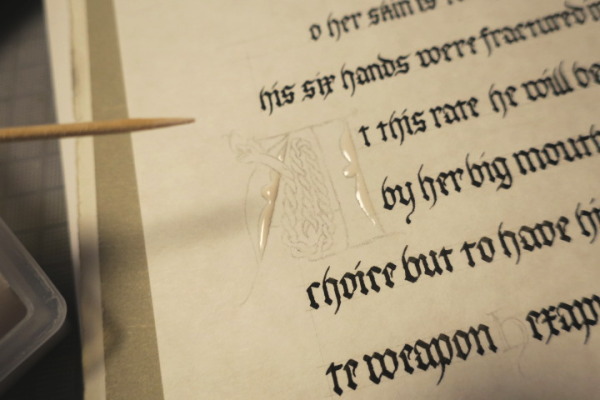 o her skin is
his six hands were fractured in
At this rate he will be
by her big mouth
choice but to have hi
te weapon h exap